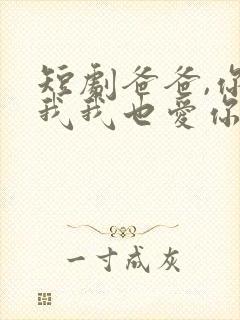 短劇爸爸,你
我我也爱你
一寸成灰